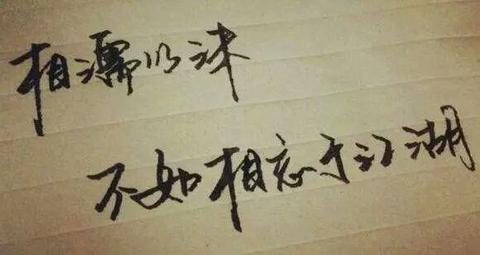 相濡以沫
不如相忘于江湖